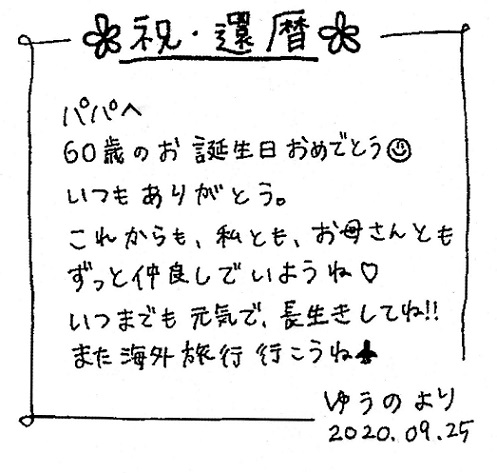 祝・還暦
パパへ
60歳のお誕生日おめでとう☺
いつもありがとう。
これからも、私とも、お母さんとも
ずっと仲良しでいようね♡
いつまでも元気で、長生きしてね!!
また海外旅行行こうね✈
ゆうのより
2020.09.25